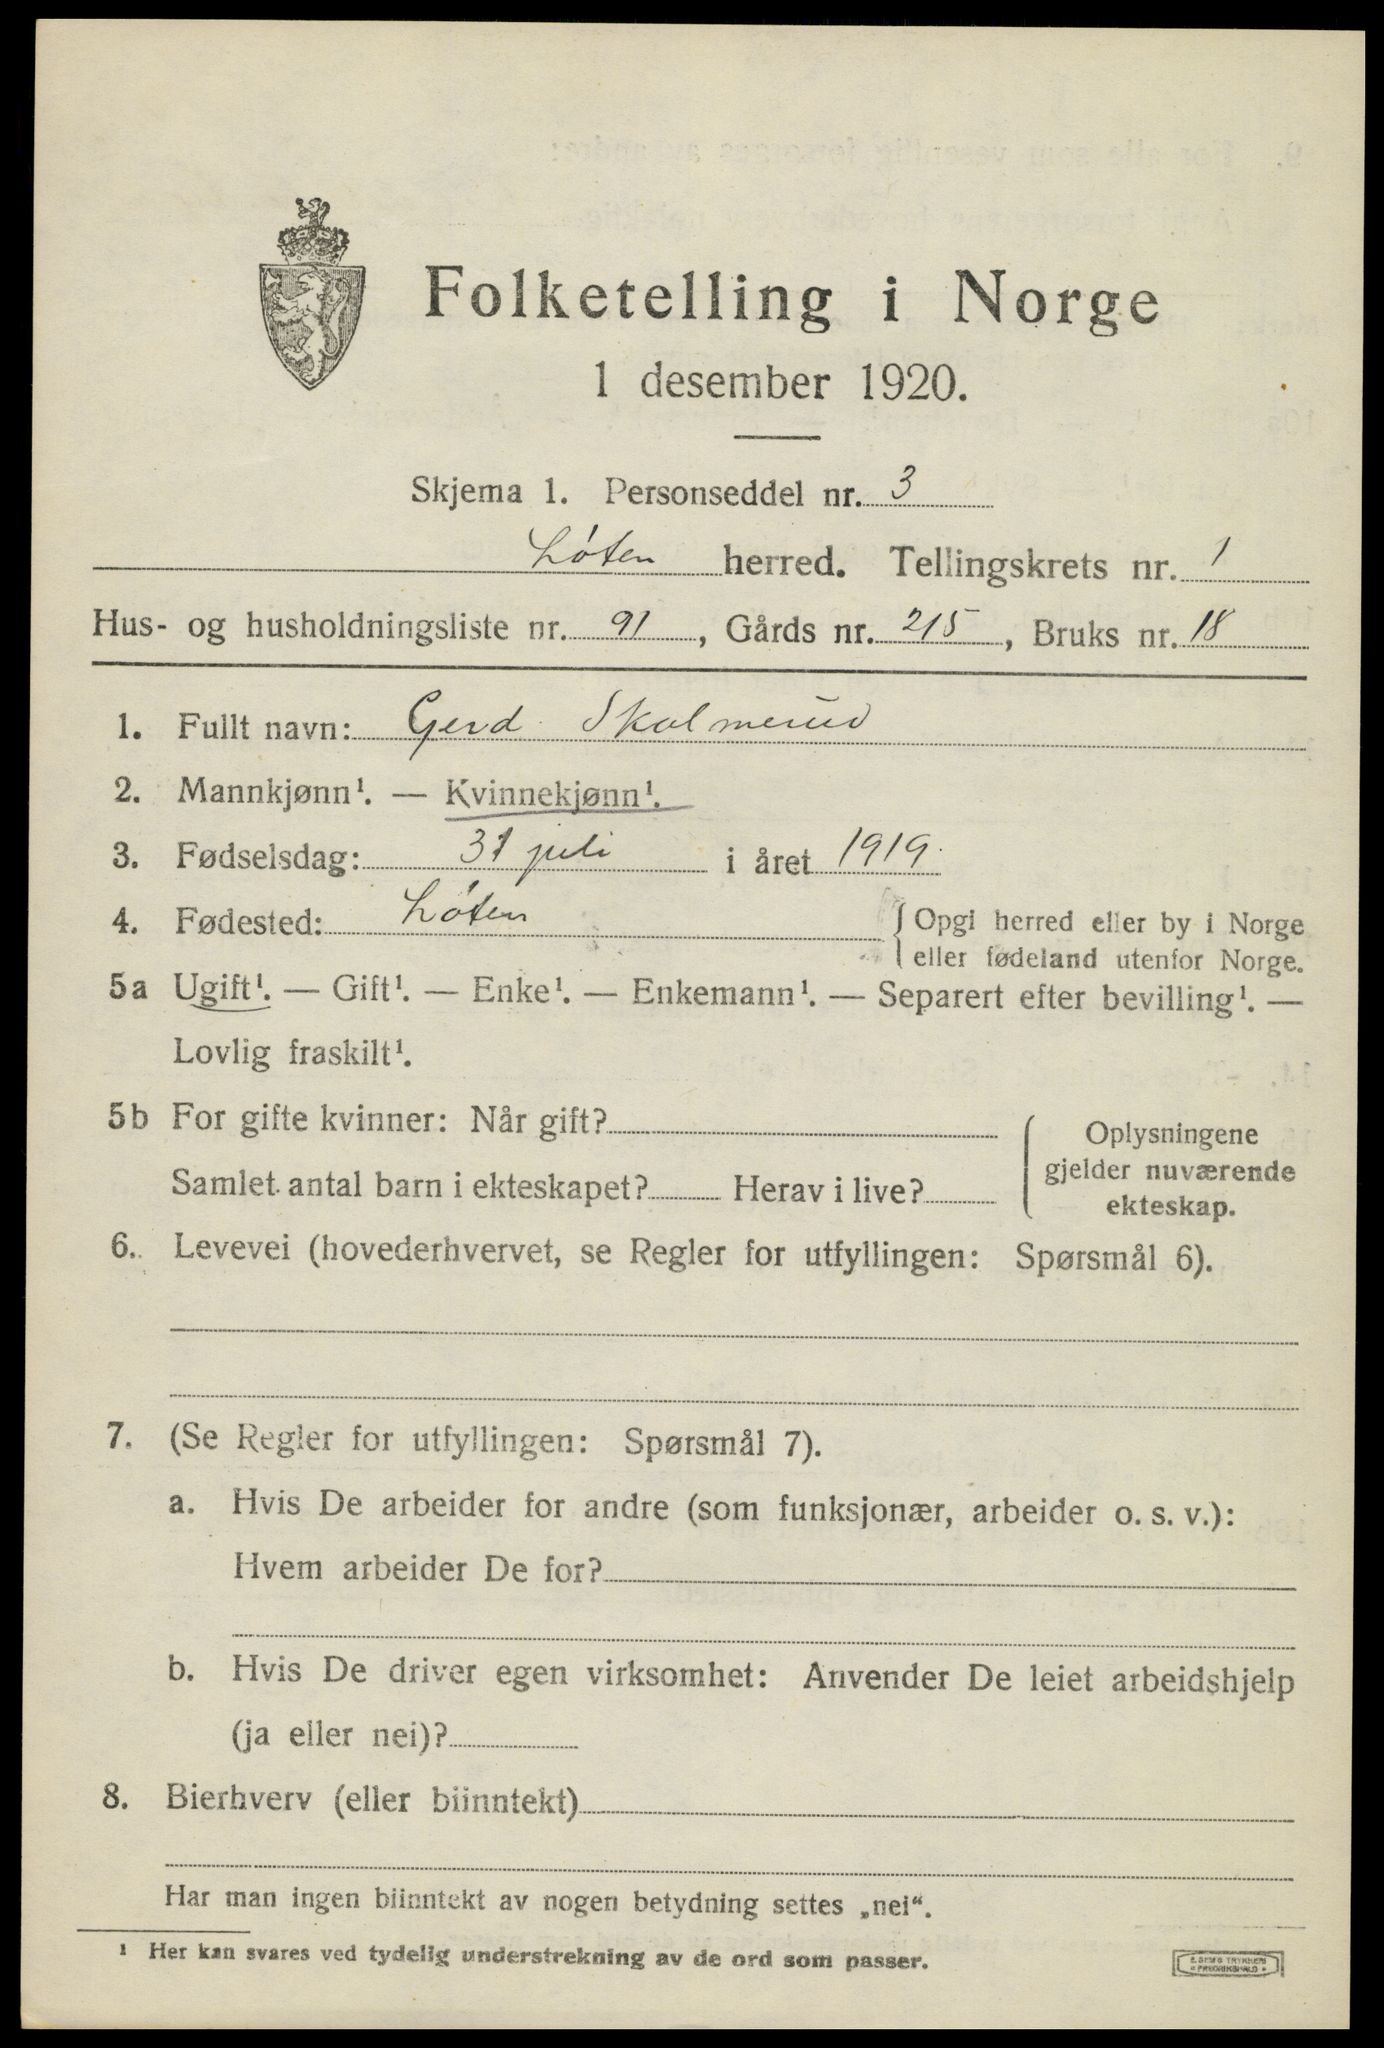 Folketelling i Norge
1 desember 1920.
Skjema 1. Personseddel nr. 3
Løten herred. Tellingskrets nr. 1
Hus- og husholdningsliste nr. 91, Gårds nr. 215, Bruks nr. 18
1. Fullt navn: Gerd Skolmerud
2. Mannkjønn¹. — Kvinnekjønn¹.
3. Fødselsdag: 31 juli i året 1919.
4. Fødested: Løten { Opgi herred eller by i Norge
eller fødeland utenfor Norge.
5a Ugift¹. — Gift¹. — Enke¹. — Enkemann¹. — Separert efter bevilling¹. —
Lovlig fraskilt¹.
5b For gifte kvinner: Når gift?
Samlet antal barn i ekteskapet? Herav i live?
Oplysningene
gjelder nuværende
ekteskap.
6. Levevei (hovederhvervet, se Regler for utfyllingen: Spørsmål 6).
7. (Se Regler for utfyllingen: Spørsmål 7).
a. Hvis De arbeider for andre (som funksjonær, arbeider o. s. v.):
Hvem arbeider De for?
b. Hvis De driver egen virksomhet: Anvender De leiet arbeidshjelp
(ja eller nei)?
8. Bierhverv (eller biinntekt)
Har man ingen biinntekt av nogen betydning settes „nei“.
¹ Her kan svares ved tydelig understrekning av de ord som passer.
E. SEMS TRYKKERI
• FREDRIKSHALD •